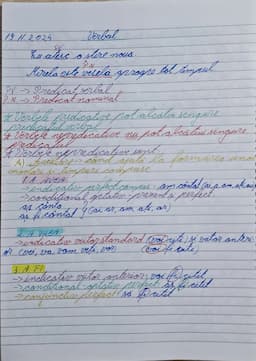 19 N. 2024 Verbul
Eu aleg o stea nouă.
P.N.
Mirela este veselă aproape tot timpul.
P.V. -> Predicat verbal
P.N. -> Predicat nominal
* Verbele predicative pot alcătui singure
predicatul verbal.
* Verbele nepredicative nu pot alcătui singure
predicatul.
* Verbele nepredicative sunt:
A) Auxiliare - când ajută la formarea unor
moduri și timpuri compuse
1. A AVEA
-> indicativ perfect compus: am cântat (ai, a, am, ați, au)
-> condițional optativ prezent și perfect
aș cânta
aș fi cântat (ai, ar, am, ați, ar)
2. A VREA
-> indicativ viitor standard (voi citi) și viitor anterior
(voi, vei, va, vom, veți, vor) (voi fi citit)
3. A FI
-> indicativ viitor anterior: voi fi citit
-> condițional optativ perfect: aș fi citit
-> conjunctiv perfect: să fi citit